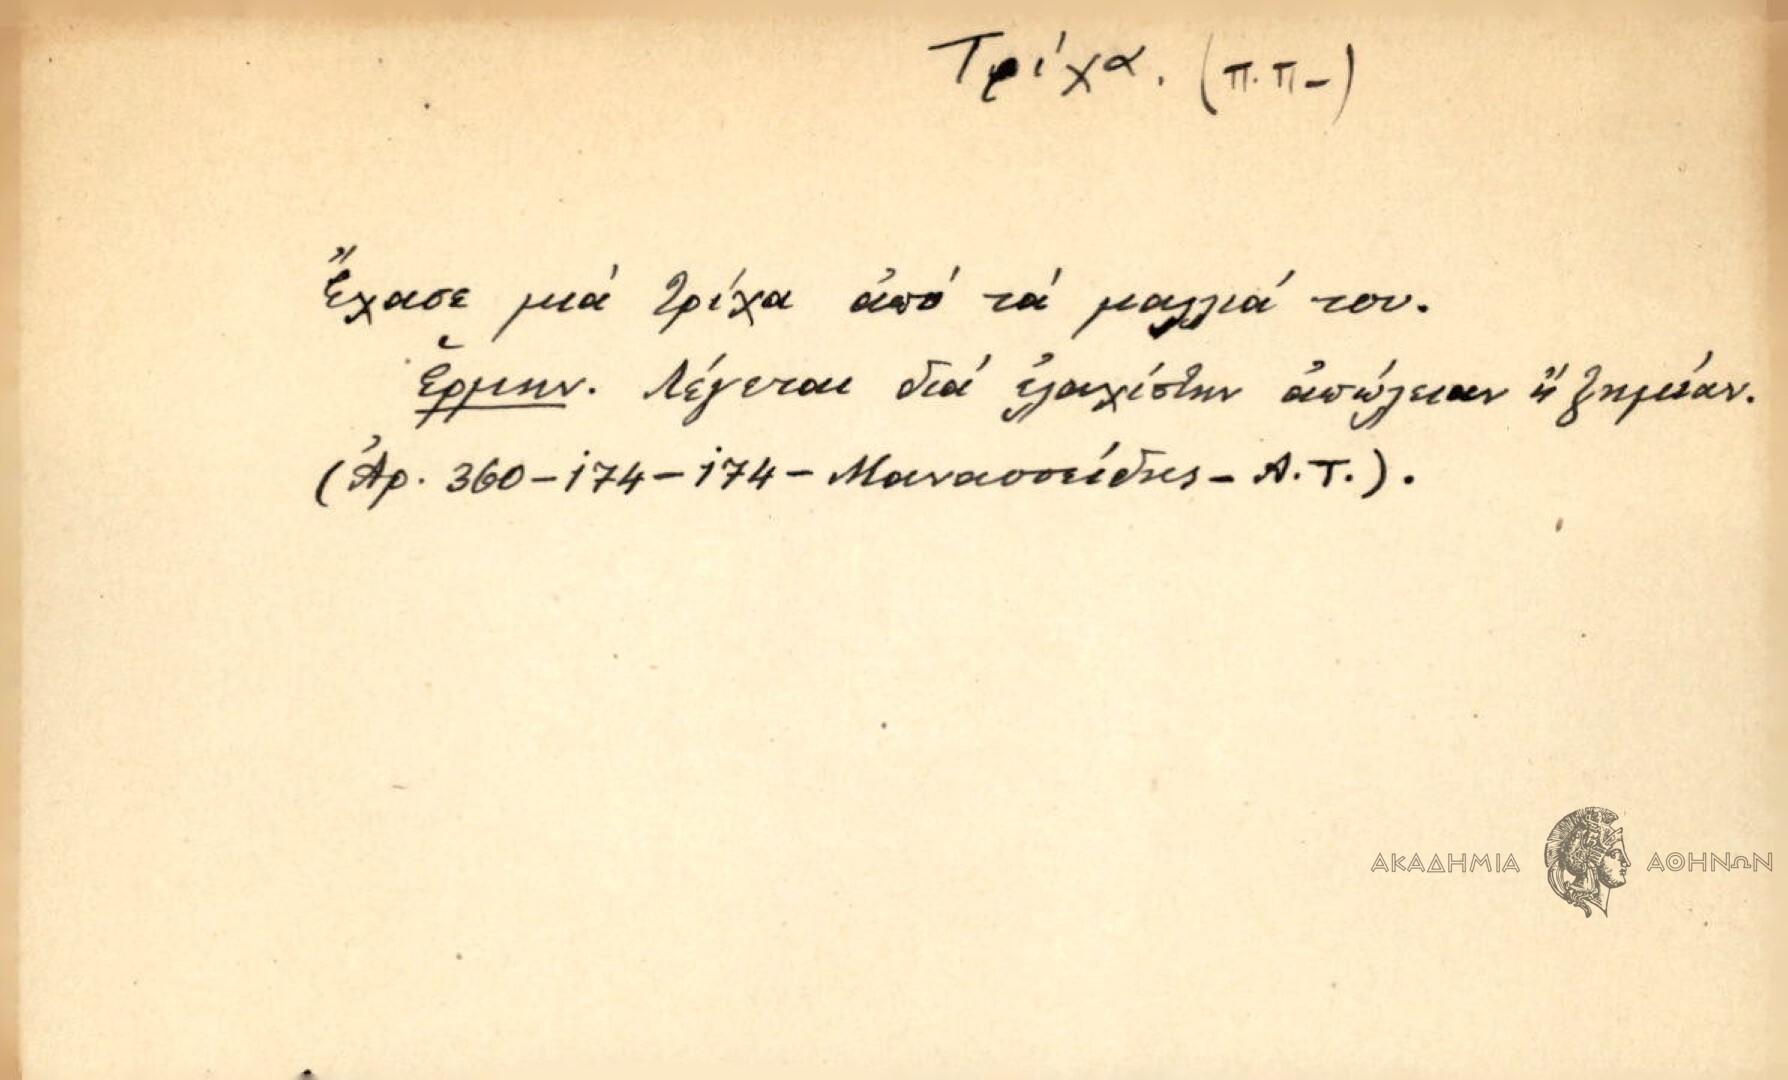 Τρίχα. (Π.Π-)
Ἔχασε μιά τρίχα ἀπό τά μαλλιά του.
Ἑρμην. Λέγεται διά ἐλαχίστην ἀπώλειαν ἤ ζημίαν.
(Ἀρ. 360-174-174- Μανασσείδης - Α.Τ.).
ΑΚΑΔΗΜΙΑ ΑΘΗΝΩΝ